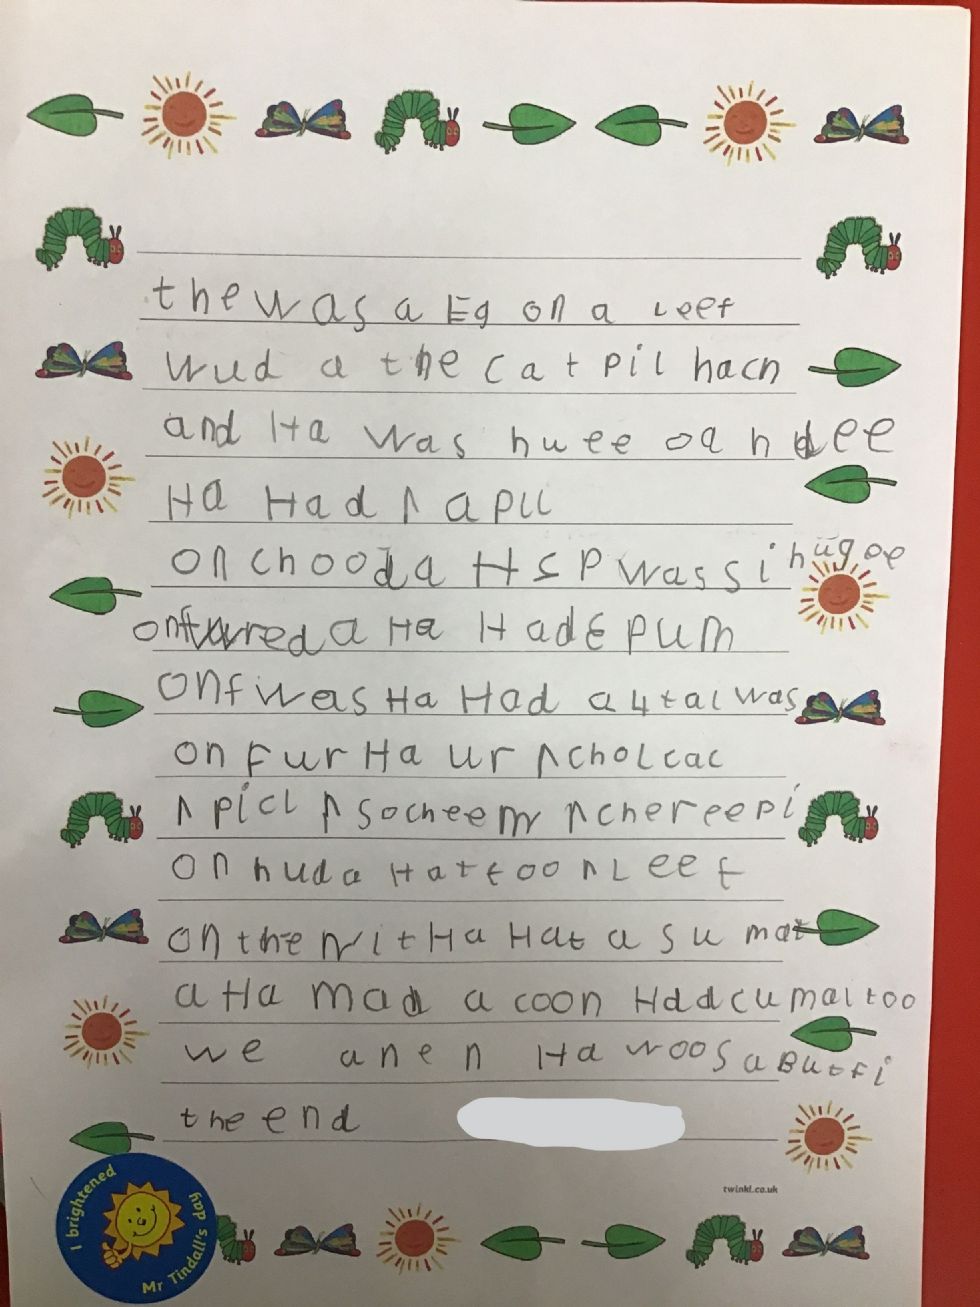 the was a Eg on a Leef
wud a the catpil hach
and Ha was huee oa n dee
Ha Had A apll
on chooda HSP was si hugoe
a Ha Had E pum
onf was Ha Had a 4 tal was
on fur Ha ur A cholcac
A picl A socheem A chereepi
on huda Hat toon Leef
on the nit Ha Hat a su mat
a Ha mad a coon Had cumal too
we anen Ha woos a Butfi
the end
twinkl.co.uk
I brightened
Mr Tindall's day